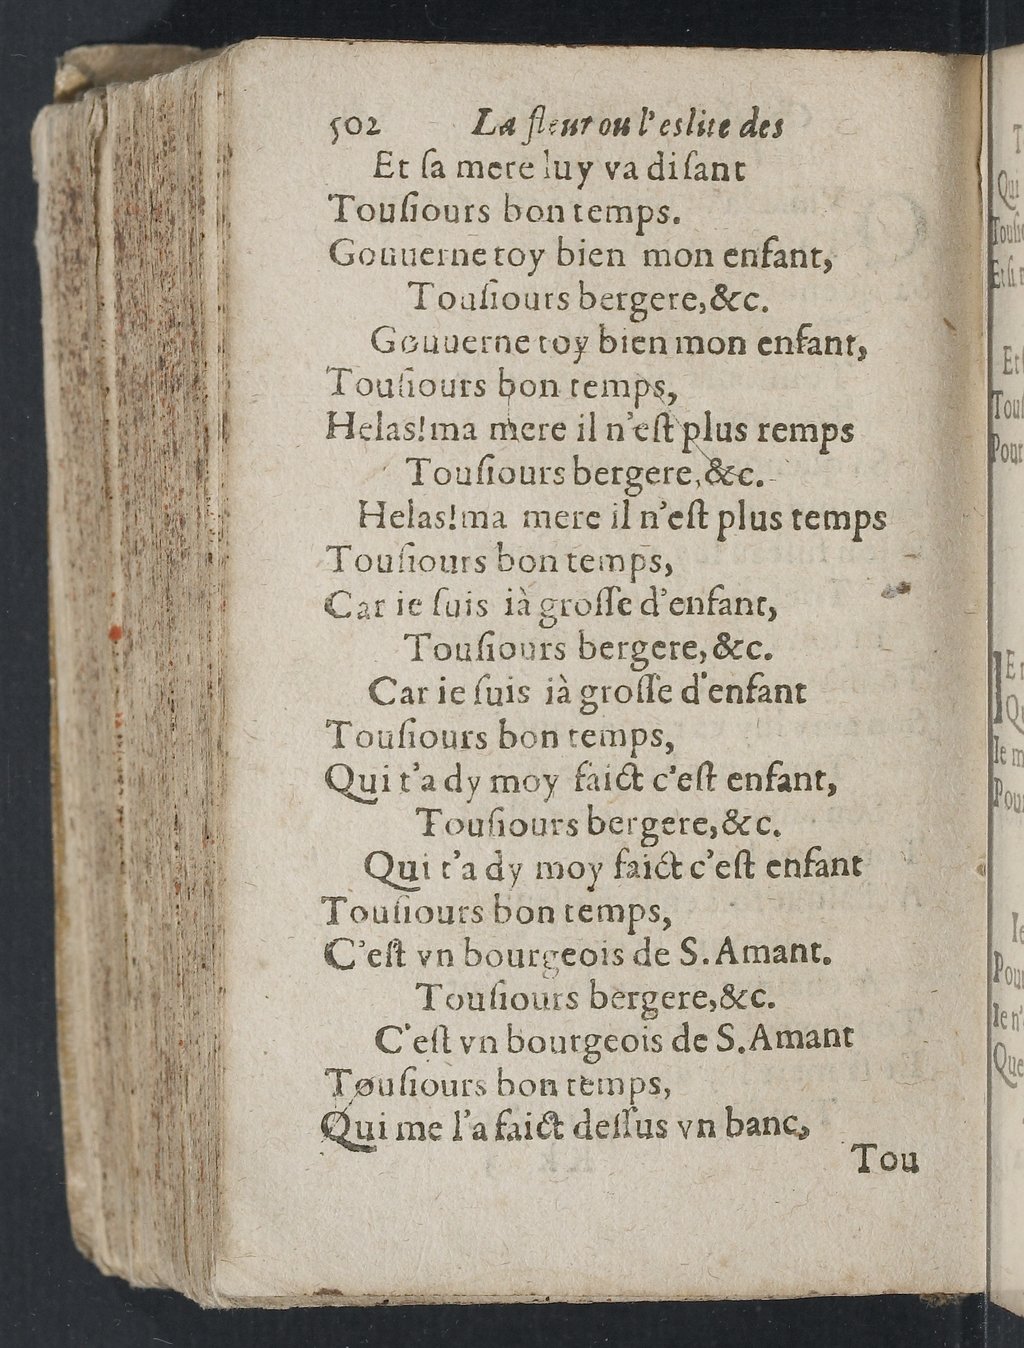 502 La fleur ou l'eslite des
Et ſa mere luy va diſant
Touſiours bon temps.
Gouuerne toy bien mon enfant,
Touſiours bergere,&c.
Gouuerne toy bien mon enfant,
Touſiours bon temps,
Helas!ma mere il n'eſt plus remps
Touſiours bergere,&c.
Helas!ma mere il n'eſt plus temps
Touſiours bon temps,
Car ie ſuis ià groſſe d'enfant,
Touſiours bergere,&c.
Car ie ſuis ià groſſe d'enfant
Touſiours bon temps,
Qui t'a dy moy faict c'eſt enfant,
Touſiours bergere,&c.
Qui t'a dy moy faict c'eſt enfant
Touſiours bon temps,
C'eſt vn bourgeois de S.Amant.
Touſiours bergere,&c.
C'eſt vn bourgeois de S.Amant
Touſiours bon temps,
Qui me l'a faict deſſus vn banc,
Tou